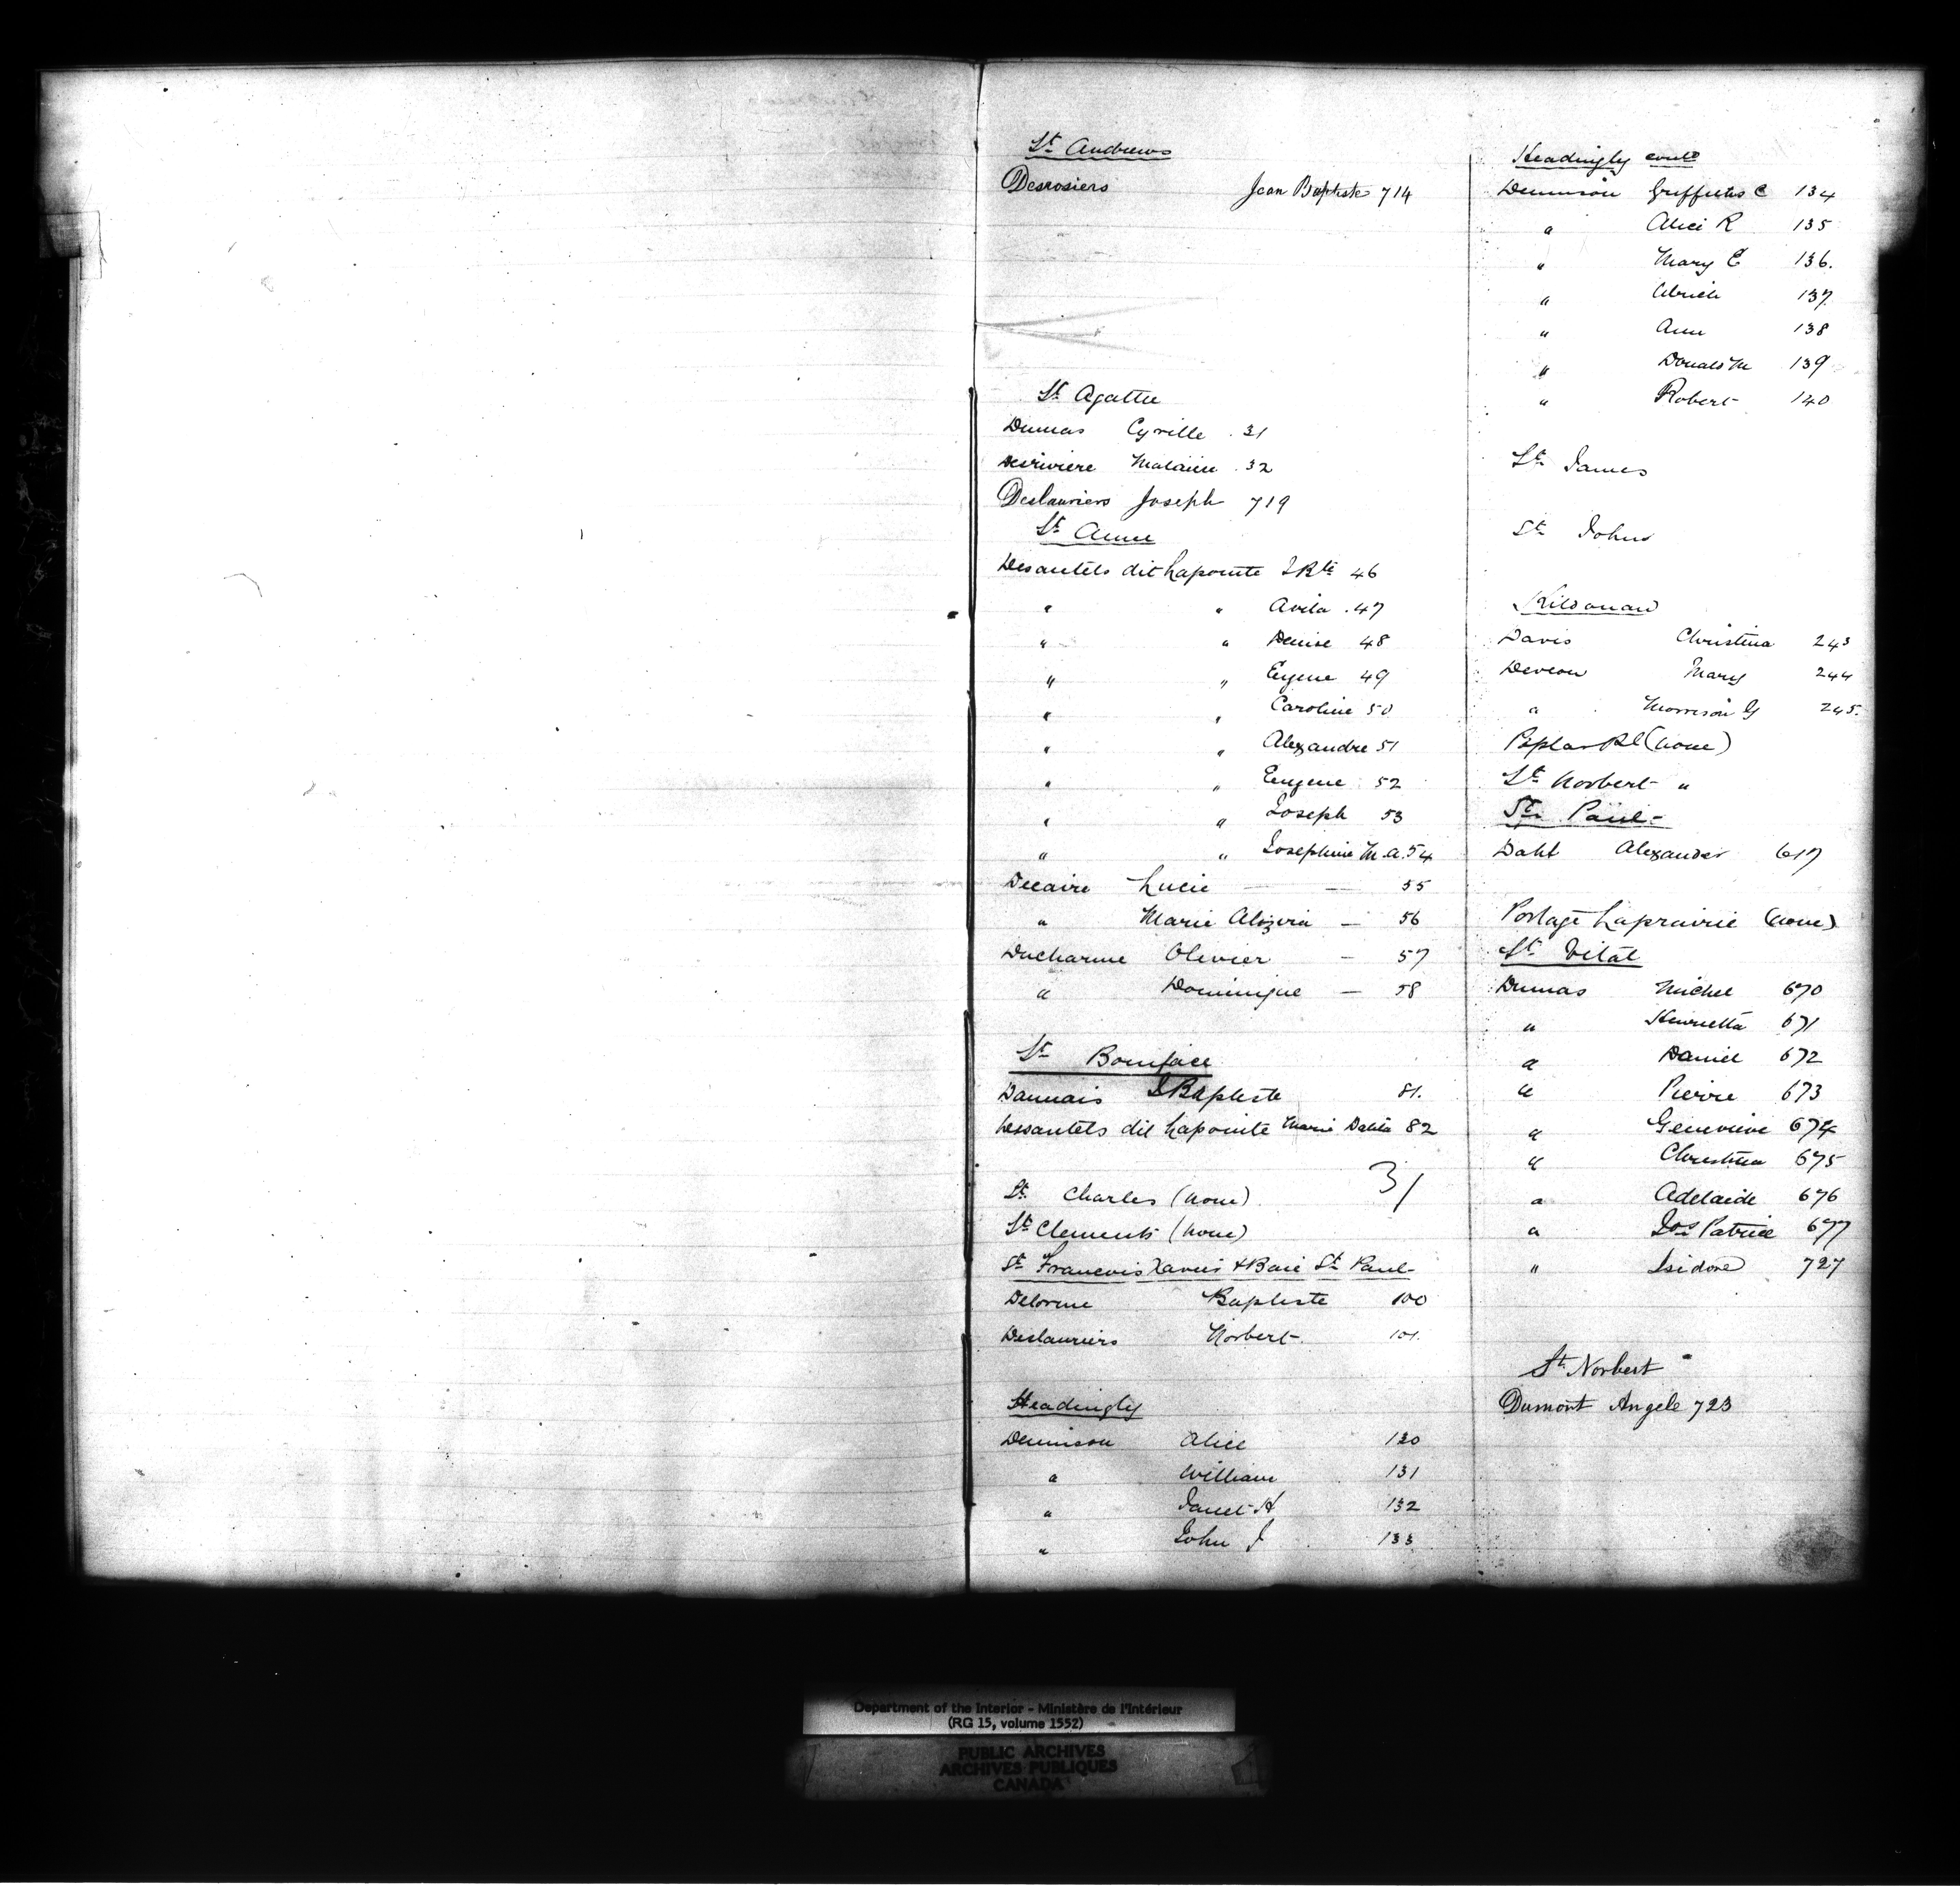 St Andrews
Desrosiers Jean Baptiste 714
St Agathe
Dumas Cyrille . 31
Desriviere . 32
Deslauriers Joseph 719
St Anne
Desautels dit Lapointe J Bte 46
" " Avila . 47
" " Denise 48
" " Eugene 49
" " Caroline 50
" " Alexandre 51
" " Eugene 52
" " Joseph 53
" " Josephine M.A. 54
Decaire Lucie — — 55
" Marie Alozira — 56
Ducharme Olivier — 57
" Dominique — 58
St Boniface
Daunais J Baptiste 81.
Dessautels dit Lapointe Marie Dalila 82
31
St Charles (none)
St Clements (none)
St Francois Xavier & Baie St Paul
Delorme Baptiste 100
Deslauriers Norbert 101.
Headingly
Dennison Alice 130
" William 131
" Janet H 132
" John J 133
Headingly contd
Dennison Griffiths C 134
" Alice R 135
" Mary E 136.
" Ulrich 137
" Ann 138
" Donald M 139
" Robert 140
St James
St Johns
Kildonan
Davis Christina 243
Deveon Mary 244
" Morrison G 245.
Poplar Pt (none)
St Norbert "
St Paul
Dahl Alexander 617
Portage Laprairie (none)
St Vital
Dumas Michel 670
" Henrietta 671
" Daniel 672
" Pierre 673
" Genevieve 674
" Christina 675
" Adelaide 676
" Jos Patrice 677
" Isidore 727
St Norbert
Dumont Angele 723
Department of the Interior - Ministère de l'Intérieur
(RG 15, volume 1552)
PUBLIC ARCHIVES
ARCHIVES PUBLIQUES
CANADA